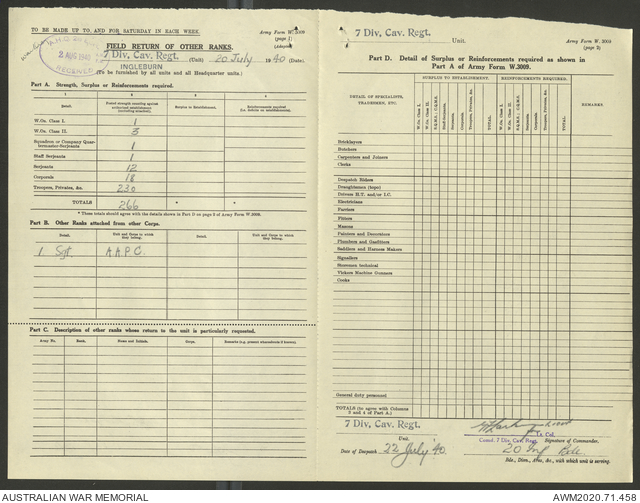 TO BE MADE UP TO, AND FOR SATURDAY IN EACH WEEK.
Army Form W. 3009
(page 1)
(Adapted)
2 AUG 1940
FIELD RETURN OF OTHER RANKS.
7 Div. Cav. Regt. (Unit) 20 July 1940 (Date).
INGLEBURN
(To be furnished by all units and all Headquarter units.)
Part A. Strength, Surplus or Reinforcements required.
1 2 3 4
Detail.
Posted strength counting against authorized establishment (including attached).
Surplus to Establishment.
Reinforcements required
W.Os. Class I. 1
W.Os. Class II. 3
Squadron or Company Quartermaster-Serjeants 1
Staff Serjeants 1
Serjeants 12
Corporals 18
Troopers, Privates, &c. 230
TOTALS 266
* These totals should agree with the details shown in Part D on page 2 of Army Form W.3009.
Part B. Other Ranks attached from other Corps.
Detail. Unit and Corps to which they belong. Detail. Unit and Corps to which they belong.
1 Sgt. A.A.P.C.
Part C. Description of other ranks whose return to the unit is particularly requested.
Army No. Rank. Name and Initials. Corps. Remarks (e.g. present whereabouts if known).
7 Div. Cav. Regt.
Unit.
Army Form W. 3009
(page 2)
Part D. Detail of Surplus or Reinforcements required as shown in
Part A of Army Form W.3009.
DETAIL OF SPECIALISTS, TRADESMEN, ETC.
SURPLUS TO ESTABLISHMENT.
REINFORCEMENTS REQUIRED.
W.Os. Class I.
W.Os. Class II.
S.Q.M.S., C.Q.M.S.
Staff Serjeants.
Serjeants.
Corporals.
Troopers, Privates, &c.
TOTAL.
W.Os. Class I.
W.Os. Class II.
S.Q.M.S., C.Q.M.S.
Staff Serjeants.
Serjeants.
Corporals.
Troopers, Privates, &c.
TOTAL.
REMARKS.
Bricklayers
Butchers
Carpenters and Joiners
Clerks
Despatch Riders
Draughtsmen
Drivers M.T. and/or I.C.
Electricians
Farriers
Fitters
Masons
Painters and Decorators
Plumbers and Gasfitters
Saddlers and Harness Makers
Signallers
Storemen technical
Vickers Machine Gunners
Cooks
General duty personnel
TOTALS (to agree with Columns 3 and 4 of Part A.)
7 Div. Cav. Regt.
Unit.
Lt. Col.
Comd. 7 Div. Cav. Regt. Signature of Commander.
Date of Despatch 22 July '40. 20 Inf Bde.
Bde., Divn., Area, &c., with which unit is serving.
AUSTRALIAN WAR MEMORIAL
AWM2020.71.458